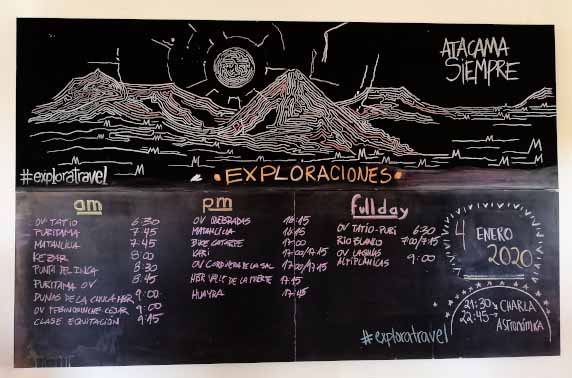 ATACAMA
SIEMPRE
#exploratravel
•EXPLORACIONES•
am
OV TATIO 6:30
PURITAMA 7:45
MATANCILLA 7:45
KEZAR 8:00
PUNTA DEL INCA 8:30
PURITAMA OV 8:45
DUNAS DE LA CHULA HBR 9:00
OV TEBINQUINCHE CEJAR 9:00
CLASE EQUITACIÓN 9:15
pm
OV QUEBRADAS 16:15
MATANCILLA 16:15
BIKE CATARPE 17:00
KARI 17:00/17:15
OV CORDILLERA DE LA SAL 17:00/17:15
HBR VALLE DE LA MUERTE 17:15
HUAYRA 17:45
fullday
OV TATIO-PURI 6:30
RIO BLANCO 7:00/7:15
OV LAGUNAS
ALTIPLÁNICAS 9:00
4
ENERO
2020
21:30
22:45 → CHARLA
ASTRONÓMIKA
#exploratravel